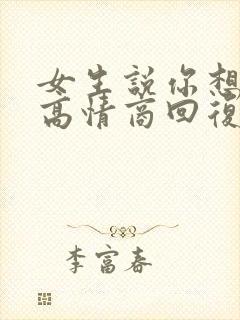 女生說你想
高情商回復
李富春